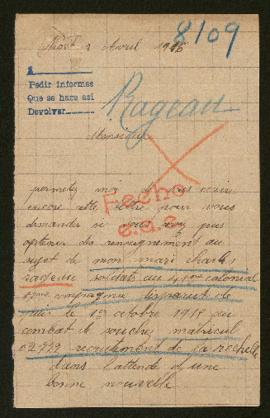 Avril 1916
8109
1
Pedir informes
Que se hace así
Devolver
Rageau
Monsieur
permetez moi de vous
encore cette lettre pour vous
demander si vous avez pus
optenir du renseignement au
sujet de mon mari charles
rageau soldat au colonial
compagnie disparut de
puis le 1er octobre 1915 au
combat de souches matricul
recrutement de la rochelle
dans l'attende d'une
bonne nouvelle
Fecho